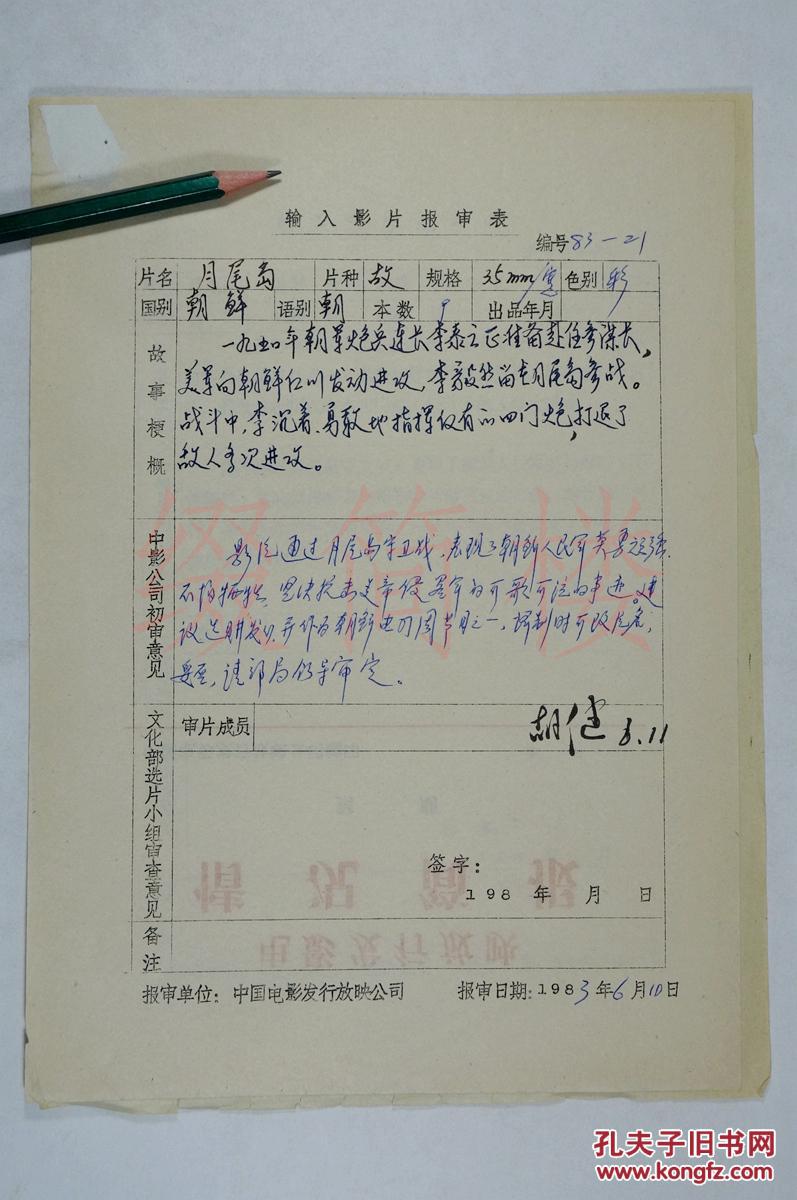 输入影片报审表
编号83-21
片名 月尾岛 片种 故 规格 35mm/宽 色别 彩
国别 朝鲜 语别 朝 本数 9 出品年月
故事梗概
一九五〇年朝军炮兵连长李泰云正准备赴任参谋长,
美军向朝鲜仁川发动进攻,李毅然留在月尾岛参战。
战斗中,李沉着、勇敢地指挥仅有的四门炮,打退了
敌人多次进攻。
中影公司初审意见
影片通过月尾岛保卫战,表现了朝鲜人民军英勇顽强、
不怕牺牲,坚决抗击美帝侵略军的可歌可泣的事迹。建
议选购发行,并作为朝鲜电影周节目之一,译制时可改片名,
妥否,请部局领导审定。
文化部选片小组审查意见
审片成员
胡健 6.11
签字:
198 年 月 日
备注
报审单位:中国电影发行放映公司 报审日期:1983年6月10日
缀简楼
情况简报
电影发行放映
孔夫子旧书网
www.kongfz.com